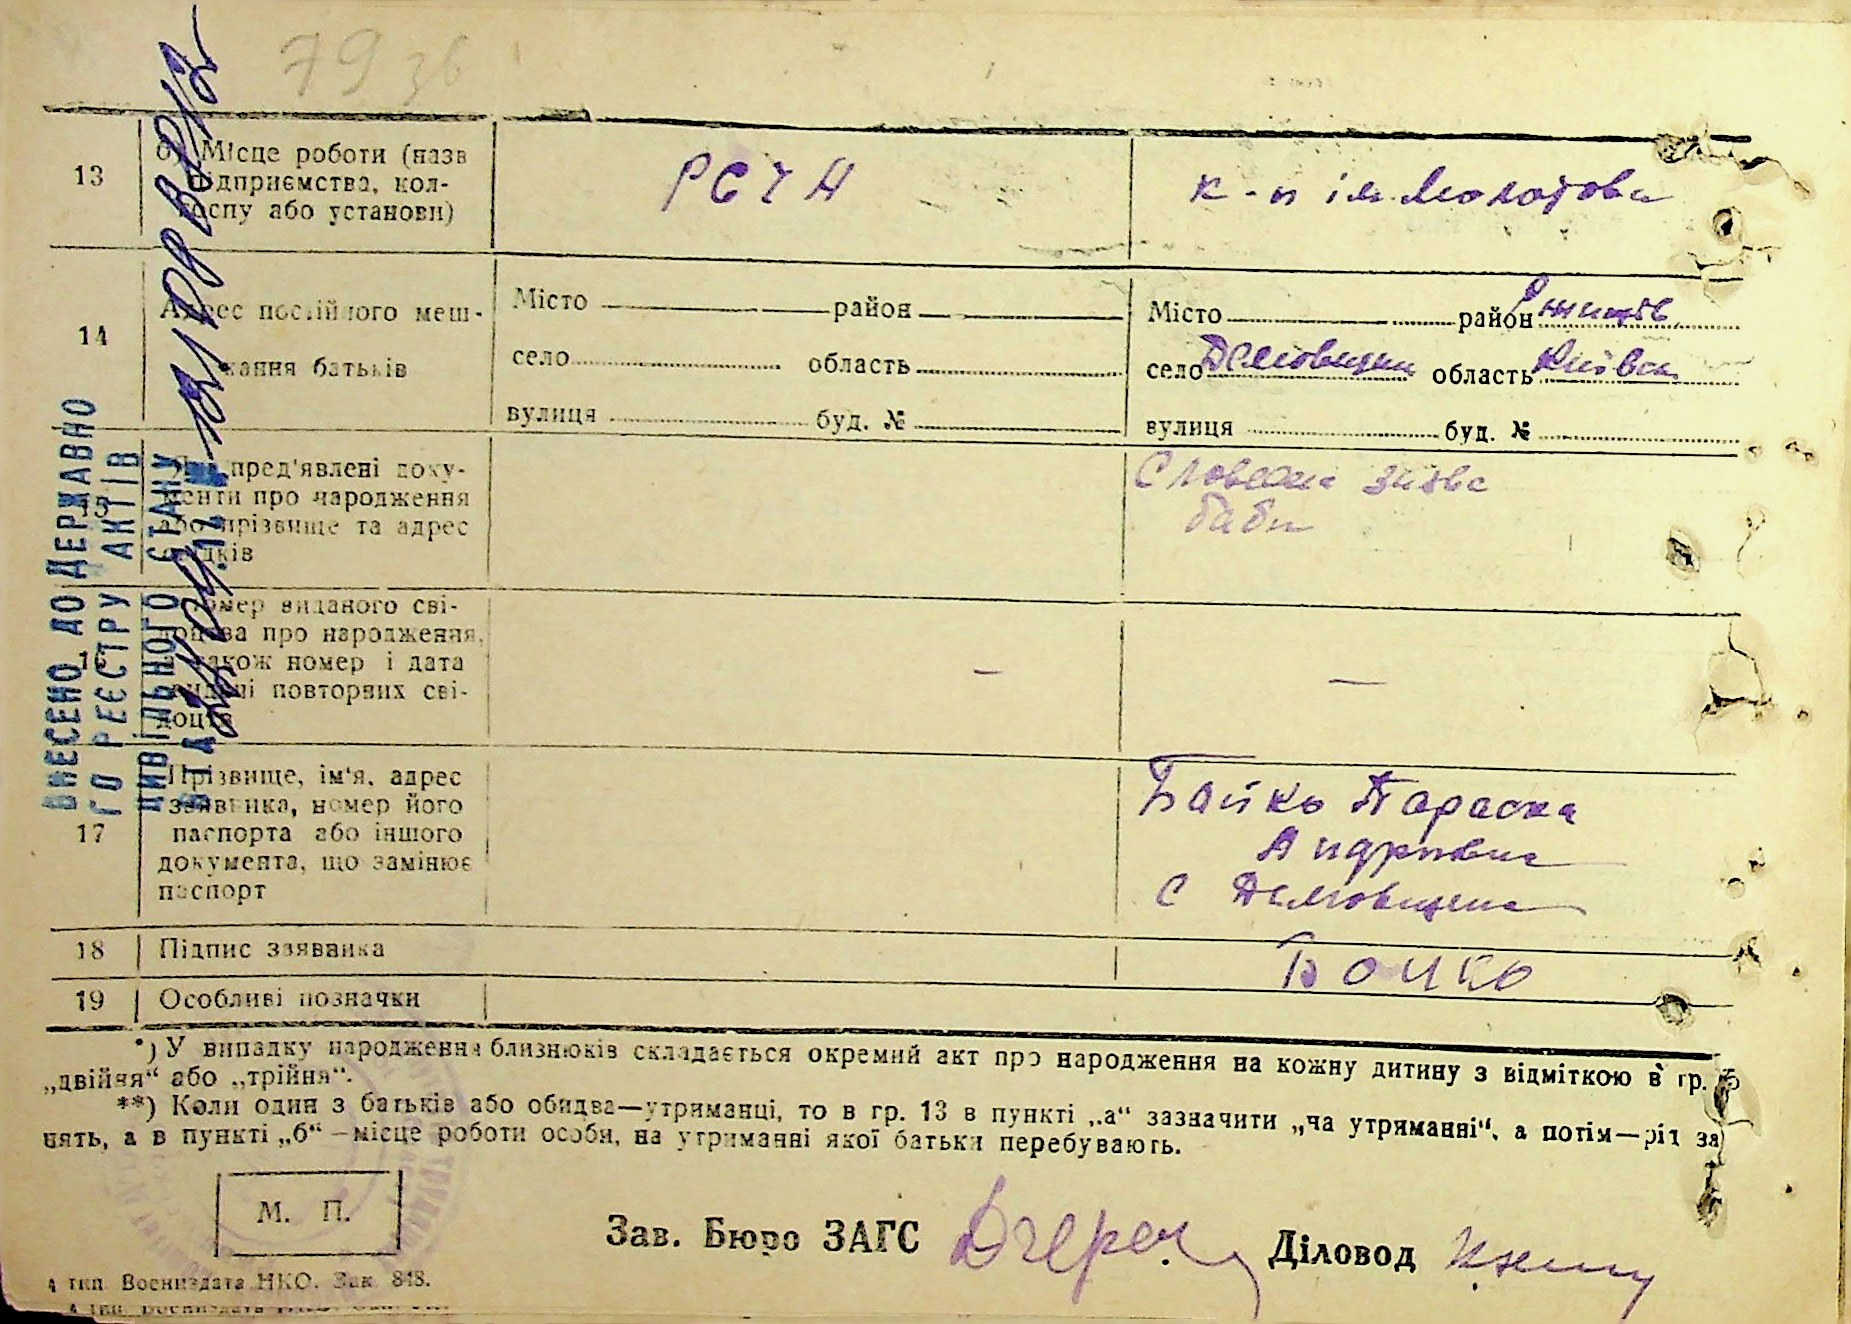 79 зв
13
б) Місце роботи (назв
підприємства, кол-
госпу або установи)
РСЧА
к-п ім Молотова
14
Адрес постійного меш-
кання батьків
Місто район
село область
вулиця буд. №
Місто район Ржищів
село область Київськ
вулиця буд. №
15
пред'явлені доку-
менти про народження
або прізвище та адрес
свідків
Словесна заява
баби
16
Номер виданого сві-
доцтва про народження,
а також номер і дата
видачі повторних сві-
доцтв
—
—
17
Прізвище, ім'я, адрес
заявника, номер його
паспорта або іншого
документа, що замінює
паспорт
Бойко Параска
Андріївна
с
18 Підпис заявника
Бойко
19 Особливі позначки
*) У випадку народження близнюків складається окремий акт про народження на кожну дитину з відміткою в гр. 5
„двійня“ або „трійня“.
**) Коли один з батьків або обидва—утриманці, то в гр. 13 в пункті „а“ зазначити „на утриманні“, а потім—рід за
нять, а в пункті „б“—місце роботи особи, на утриманні якої батьки перебувають.
М. П.
Зав. Бюро ЗАГС
Діловод
4 тип. Воениздата НКО. Зак. 848.
ВНЕСЕНО ДО ДЕРЖАВНО
ГО РЕЄСТРУ АКТІВ
ЦИВІЛЬНОГО СТАНУ